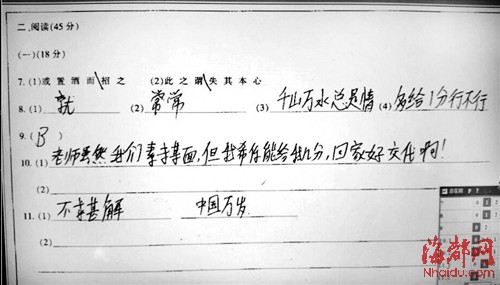 二、阅读(45分)
(一)(18分)
7. (1)或置酒而\招之 (2)此之谓\失其本心
8. (1) 就 (2) 常常 (3) 千山万水总是情 (4) 多给1分行不行
9. ( B )
10. (1) 老师虽然我们素未某面,但我希望能给我几分,回家好交代啊!
(2)
11. (1) 不求甚解 中国万岁
(2)
海都网
Nhaidu.com